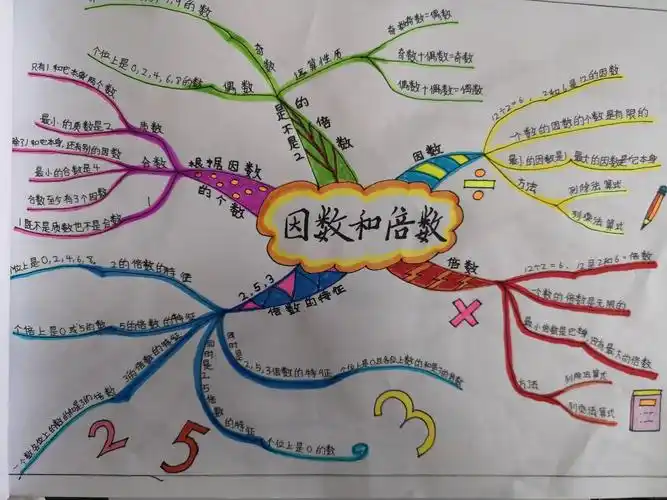 因数和倍数
是不是2的倍数
奇数
7,9的数
偶数
个位上是0,2,4,6,8的数
运算性质
奇数+奇数=偶数
奇数+偶数=奇数
偶数+偶数=偶数
因数
÷
12÷2=6，2和6是12的因数
一个数的因数的个数是有限的
最小的因数是1，最大的因数是它本身
方法
列除法算式
列乘法算式
倍数
×
12÷2=6，12是2和6的倍数
一个数的倍数是无限的
最小倍数是它本身，没有最大的倍数
方法
列除法算式
列乘法算式
2,5,3
倍数的特征
2的倍数的特征
位上是0,2,4,6,8,
5的倍数的特征
个位上是0或5的数
3的倍数的特征
一个数各位上的数的和是3的倍数
同时是2,5倍数的特征
个位上是0的数
同时是2,5,3倍数的特征
个位上是0且各位上数的和是3的倍数
根据因数的个数
质数
只有1和它本身两个数
最小的质数是2
合数
除了1和它本身，还有别的因数
最小的合数是4
合数至少有3个因数
1
1既不是质数也不是合数
2
5
3